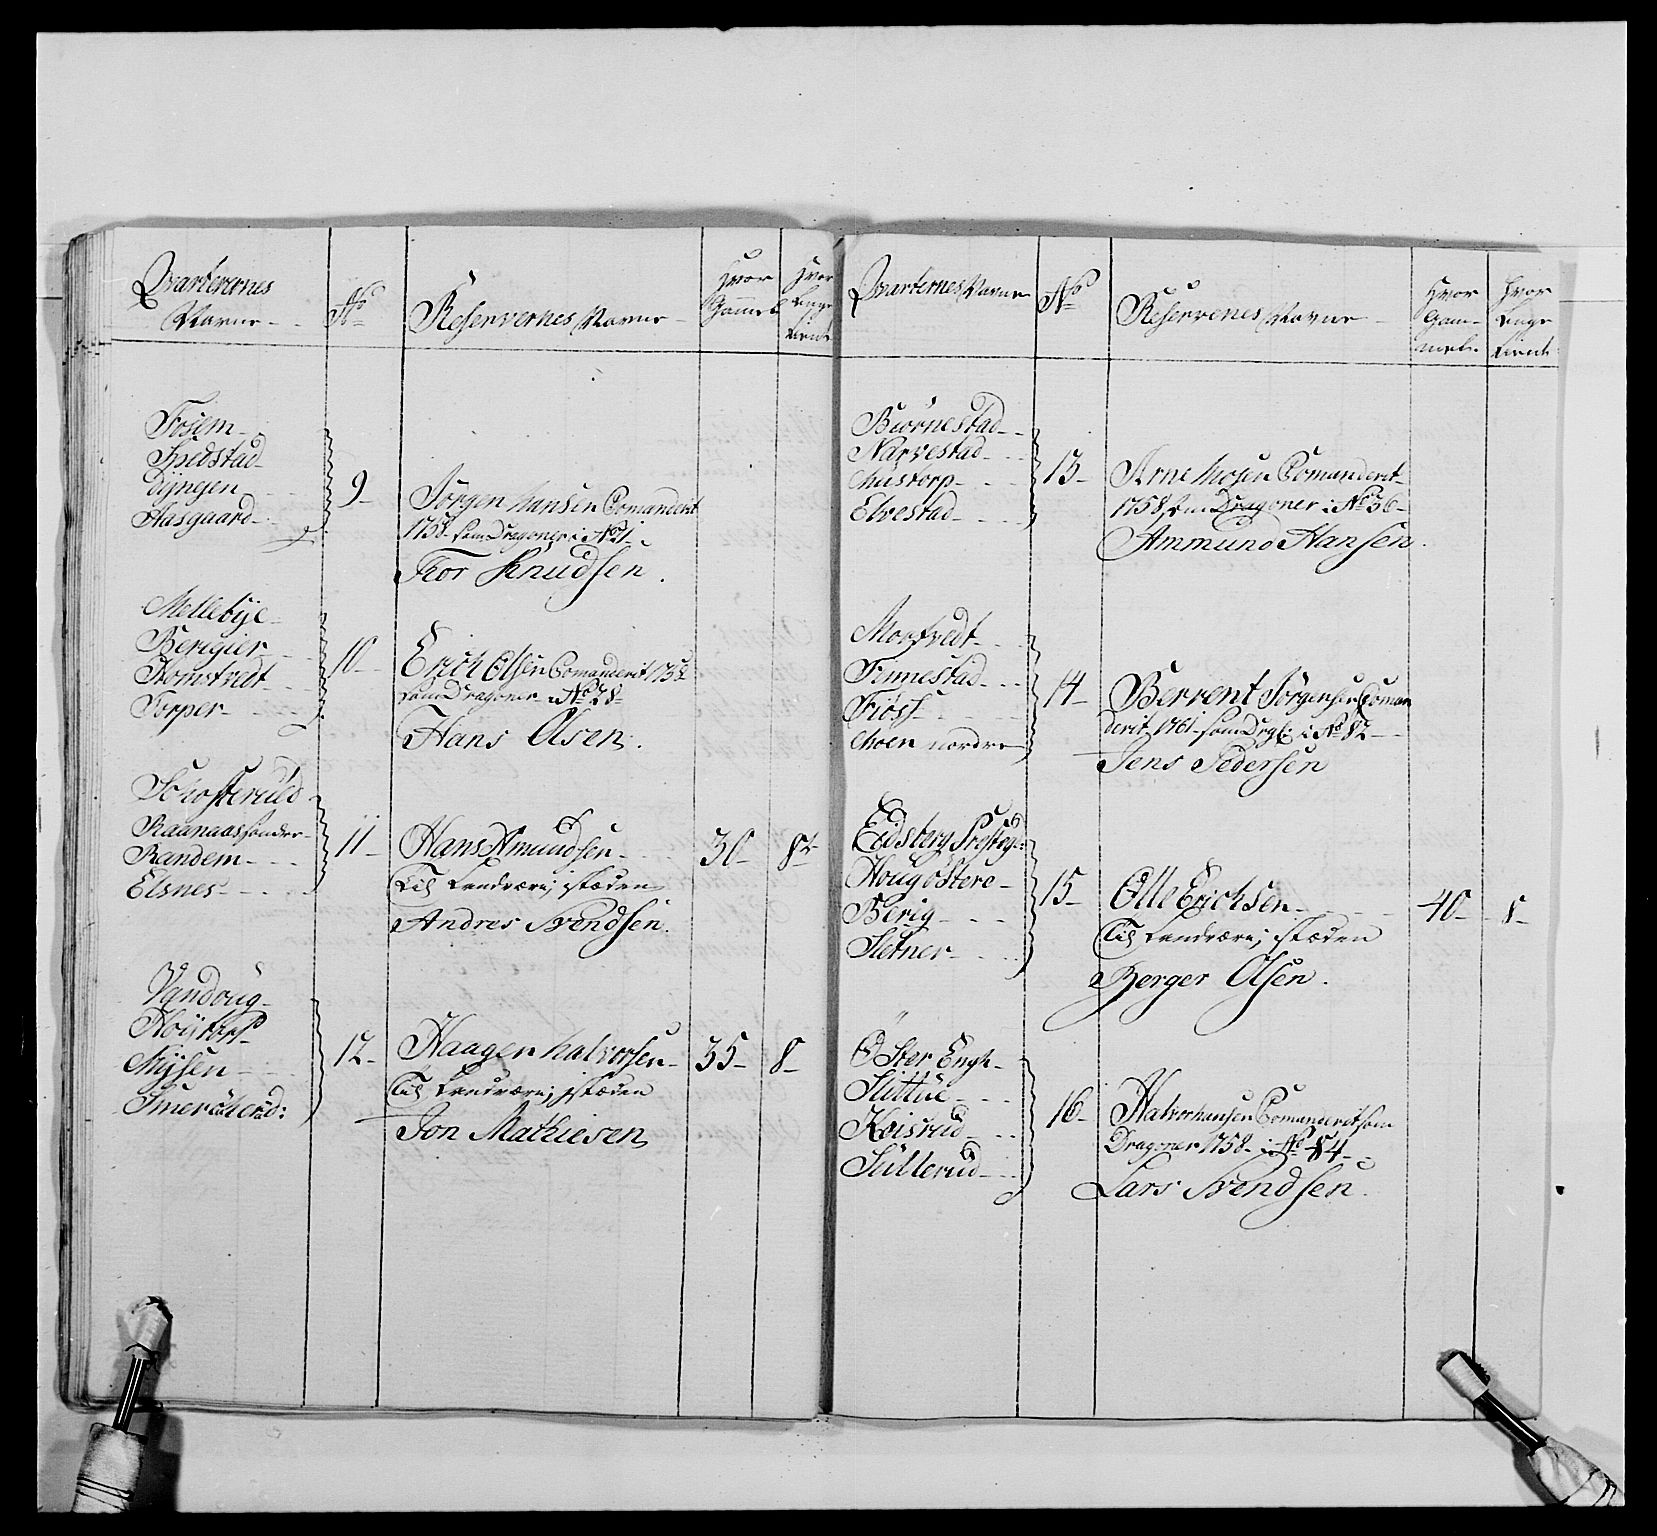 Qvarterernes
Navne
No
Reservernes Navne
Hvor
Gammel
Hvor
Lenge
tient
Fosem
Spidstad
Dÿngen
Aasgaard
9
Jörgen Hansen Comanderit
1758 som Dragoner i No 21
Tor Knudsen.
Mellebÿe
Berigier
Homstvedt
Torper
10
Erich Olsen Comanderit
som Dragoner i No 28
Hans Olsen.
Raanaas sönder
Randem
Elsnes
11
Hans Amundsen
30
8½
Til Landværn, i stæden
Andres Svendsen.
Vandoug
Mÿsen
12
Haagen Halvorsen
35
8
Til Landværn, i stæden
Jon Mathiesen
Qvarternes Navne
No
Reservenes Navne
Hvor
Gam-
mel.
Hvor
Lenge
tient
Biörnestad
Narvestad
Mustorp
Elvestad
13
Arne Mosen Comanderit
1758 som Dragoner i No 36
Ammund Hansen.
Mortvedt
Finnestad
Fiöss
Moen nordre
14
Berrent Jörgensen Coman
derit 1761 som Drag: i No 82
Jens Pedersen
Eidsberg Presteg:
Houg östere
Berig
Sletner
15
Olle Erichsen
40
8
Til Landværn, i stæden
Berger Olsen.
Öster Engh
Slittue
Koisrud
Süllerud
16
Halvor Hansen Comanderit som
Dragoner 1758 i No 84
Lars Svendsen.